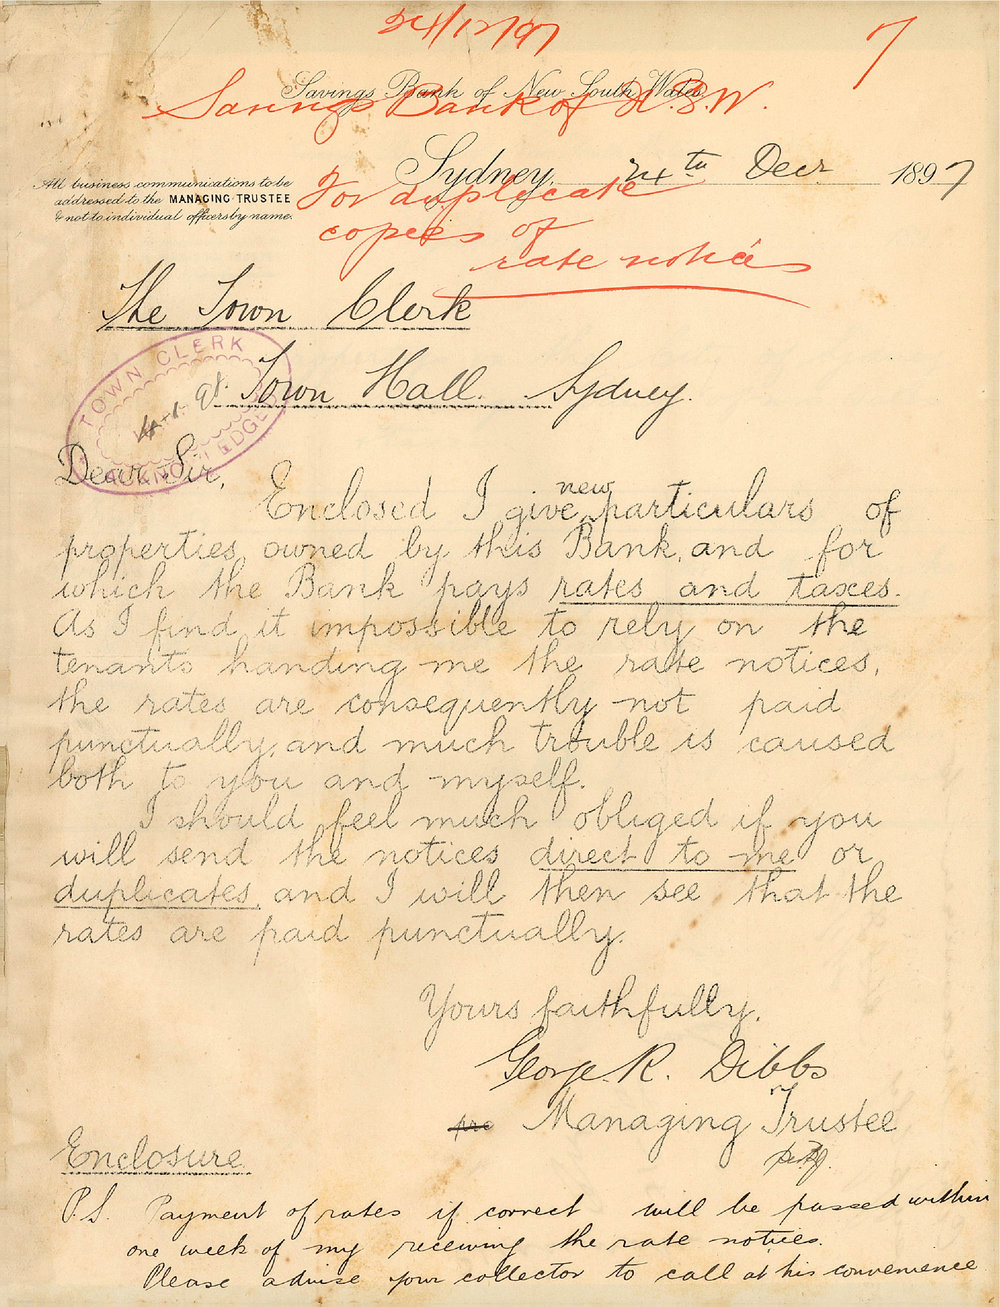 24/12/97
7
Savings Bank of New South Wales
Savings Bank of N.S.W.
Sydney, 24th Decr 1897
All business communications to be
addressed to the MANAGING TRUSTEE
& not to individual officers by name.
For duplicate
copies of
rate notices
The Town Clerk
Town Hall. Sydney.
TOWN CLERK
ACKNOWLEDGED
Dear Sir,
Enclosed I give new particulars of
properties owned by this Bank, and for
which the Bank pays rates and taxes.
As I find it impossible to rely on the
tenants handing me the rate notices,
the rates are consequently not paid
punctually, and much trouble is caused
both to you and myself.
I should feel much obliged if you
will send the notices direct to me or
duplicates, and I will then see that the
rates are paid punctually.
Yours faithfully,
George R. Dibbs
pro Managing Trustee
Enclosure
P.S. Payment of rates if correct will be passed within
one week of my receiving the rate notices.
Please advise your collector to call at his convenience